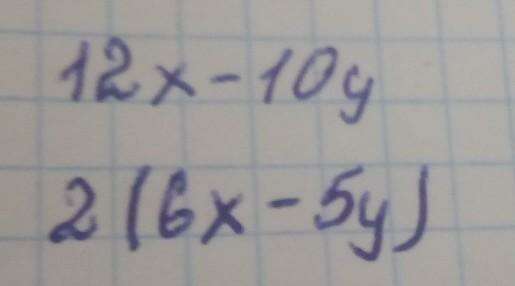 12x - 10y
2(6x - 5y)